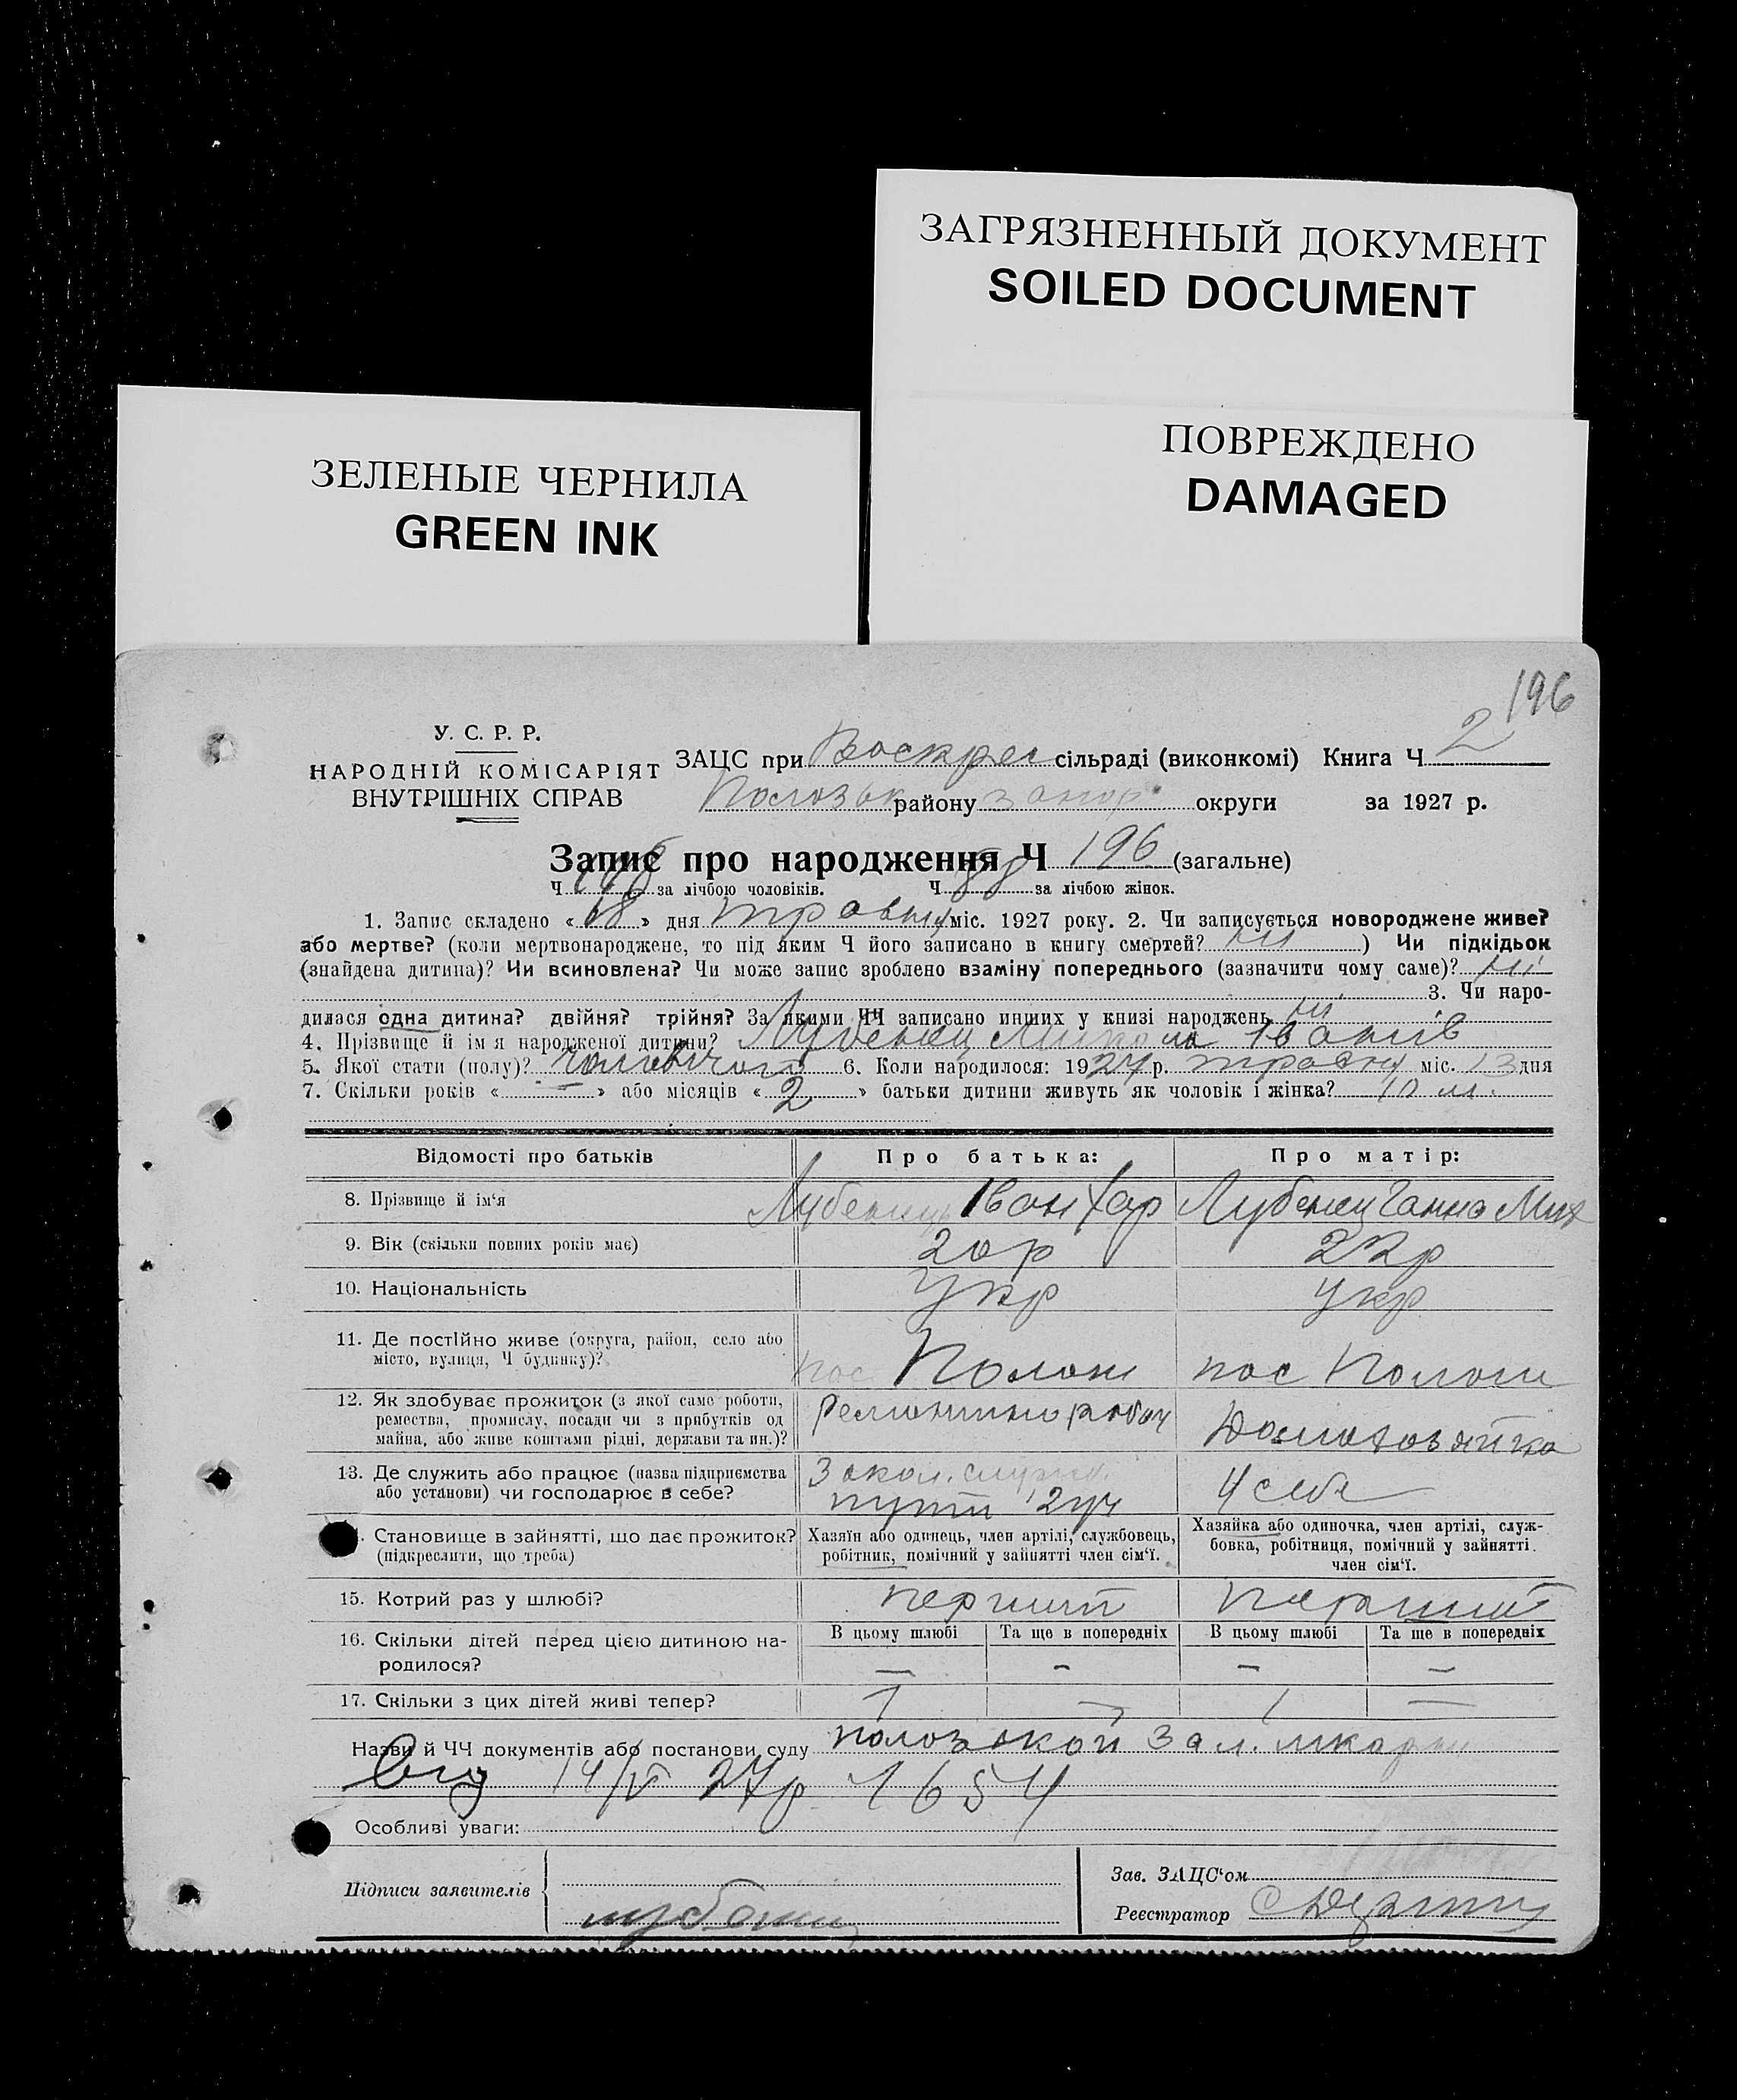 ЗАГРЯЗНЕННЫЙ ДОКУМЕНТ
SOILED DOCUMENT
ПОВРЕЖДЕНО
DAMAGED
ЗЕЛЕНЫЕ ЧЕРНИЛА
GREEN INK
196
У. С. Р. Р.
НАРОДНІЙ КОМІСАРІЯТ
ВНУТРІШНІХ СПРАВ
ЗАЦС при Воскрес сільраді (виконкомі) Книга Ч 2
Полозьк району запор округи за 1927 р.
Запис про народження Ч 196 (загальне)
Ч за лічбою чоловіків. Ч 88 за лічбою жінок.
1. Запис складено « 18 » дня травня міс. 1927 року. 2. Чи записується новороджене живе?
або мертве? (коли мертвонароджене, то під яким Ч його записано в книгу смертей? ні ) Чи підкідьок
(знайдена дитина)? Чи всиновлена? Чи може запис зроблено взаміну попереднього (зазначити чому саме)? ні
3. Чи наро-
дилася одна дитина? двійня? трійня? За якими ЧЧ записано инших у книзі народжень ні
4. Прізвище й ім'я народженої дитини? Лубенец Микола Іванів
5. Якої стати (полу)? чоловічого 6. Коли народилося: 1927 р. травня міс. 13 дня
7. Скільки років « — » або місяців « 2 » батьки дитини живуть як чоловік і жінка? 10 м.
Відомості про батьків Про батька: Про матір:
8. Прізвище й ім'я Лубенець Іван Хар Лубенец Ганна Мих
9. Вік (скільки повних років має) 20 р 22 р
10. Національність Укр Укр
11. Де постійно живе (округа, район, село або
місто, вулиця, Ч будинку)? пос Пологи пос Пологи
12. Як здобуває прожиток (з якої саме роботи,
ремества, промислу, посади чи з прибутків од
майна, або живе коштами рідні, держави та ин.)? Ремонтний робоч Домохозяйка
13. Де служить або працює (назва підприємства
або установи) чи господарює в себе? служб. пути 2 уч У себе
Становище в зайнятті, що дає прожиток?
(підкреслити, що треба)
Хазяїн або одинець, член артілі, службовець,
робітник, помічний у зайнятті член сім'ї.
Хазяйка або одиночка, член артілі, служ-
бовка, робітниця, помічний у зайнятті
член сім'ї.
15. Котрий раз у шлюбі? перший перший
16. Скільки дітей перед цією дитиною на-
родилося?
В цьому шлюбі Та ще в попередніх В цьому шлюбі Та ще в попередніх
— — — —
17. Скільки з цих дітей живі тепер?
Назви й ЧЧ документів або постанови суду Полозької Зал. лікарні
від 14/V 27 р 1654
Особливі уваги:
Підписи заявителів
Зав. ЗАЦС'ом
Реєстратор